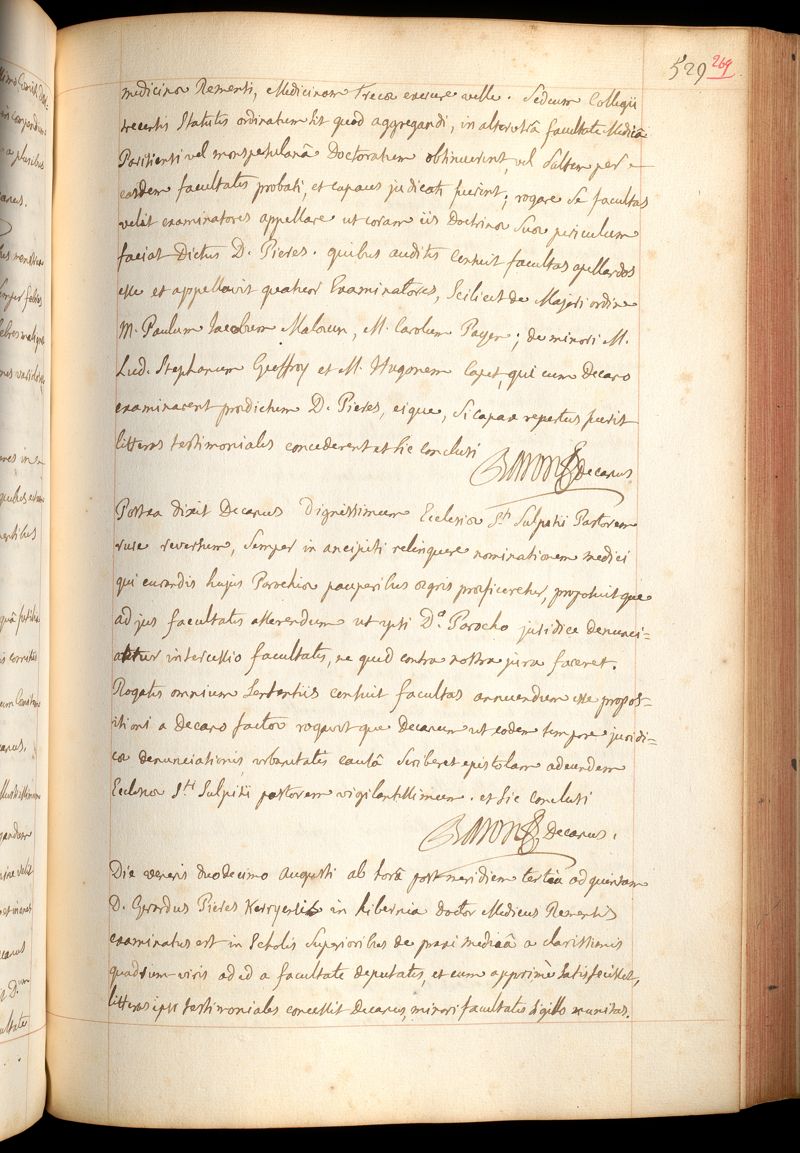 529 269
medicinæ Remensi, Medicinam Trecæ exercere velle. Sed cum Collegii
trecensis Statutis ordinatum sit quod aggregandi, in alterutrâ facultate Medicâ
Parisiensi vel monspeliensi Doctoratum obtinuerint, vel saltem per
easdem facultates probati, et capaces judicati fuerint; rogare se facultas
velit examinatores appellare ut coram iis Doctrinæ suæ periculum
faciat Dictus D. Pieres. quibus auditis censuit facultas apellandos
esse et appellavit quatuor Examinatores, Scilicet de Majori ordine
M. Paulum Jacobum Malouin, M. Carolum Payen; de minori M.
Lud. Stephanum Geoffroy et M. Hugonem Capet, qui cum Decano
examinarent prædictum D. Pieres, eique, si capax repertus fuerit
litteras testimoniales concederent et sic conclusi
Baron Decanus
Postea dixit Decanus Dignissimum Ecclesiæ Sti Sulpitii Pastorem
rure reversum, semper in ancipiti relinquere nominationem medici
qui curandis hujus Parochiæ pauperibus ægris præficeretur, proposuitque
ad jus facultatis asserendum ut ipsi Do. Parocho juridice denunci=
aretur intercessio facultatis, ne quid contra nostra jura faceret.
Rogatis omnium Sententiis censuit facultas annuendum esse propos=
itioni a Decano factæ rogavitque Decanum ut eodem tempore juridi=
cæ denunciationis, urbanitatis causâ scriberet epistolam ad eundem
Ecclesiæ Sti Sulpitii pastorem vigilantissimum. et sic conclusi
Baron Decanus.
Die veneris duodecimo Augusti ab horâ post meridiem tertiâ ad quintam
D. Gerardus Pieres Kerryensis in hibernia doctor Medicus Remensis
examinatus est in Scholis Superioribus de praxi medicâ a clarissimis
quatuor viris ad id a facultate deputatis, et cum apprimè satisfecisset,
litteras ipsi testimoniales concessit Decanus, minori facultatis sigillo munitas.